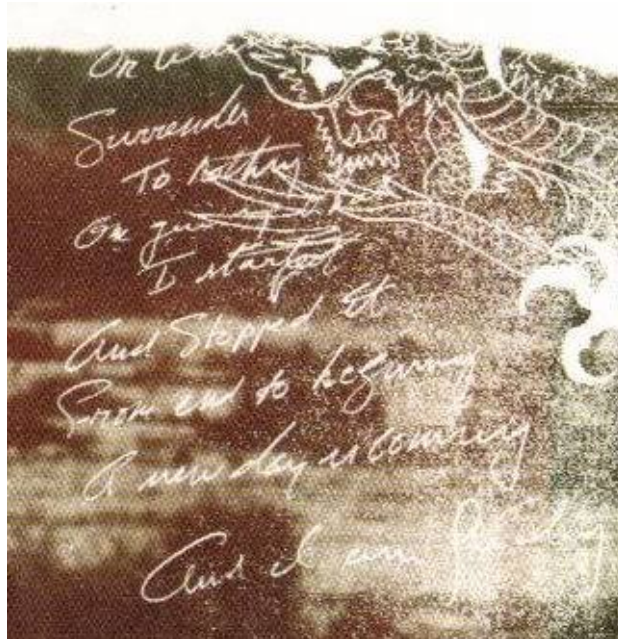 Surrender
To nothing
I started
And Stopped It
From end to beginning
A new day is coming
And I am